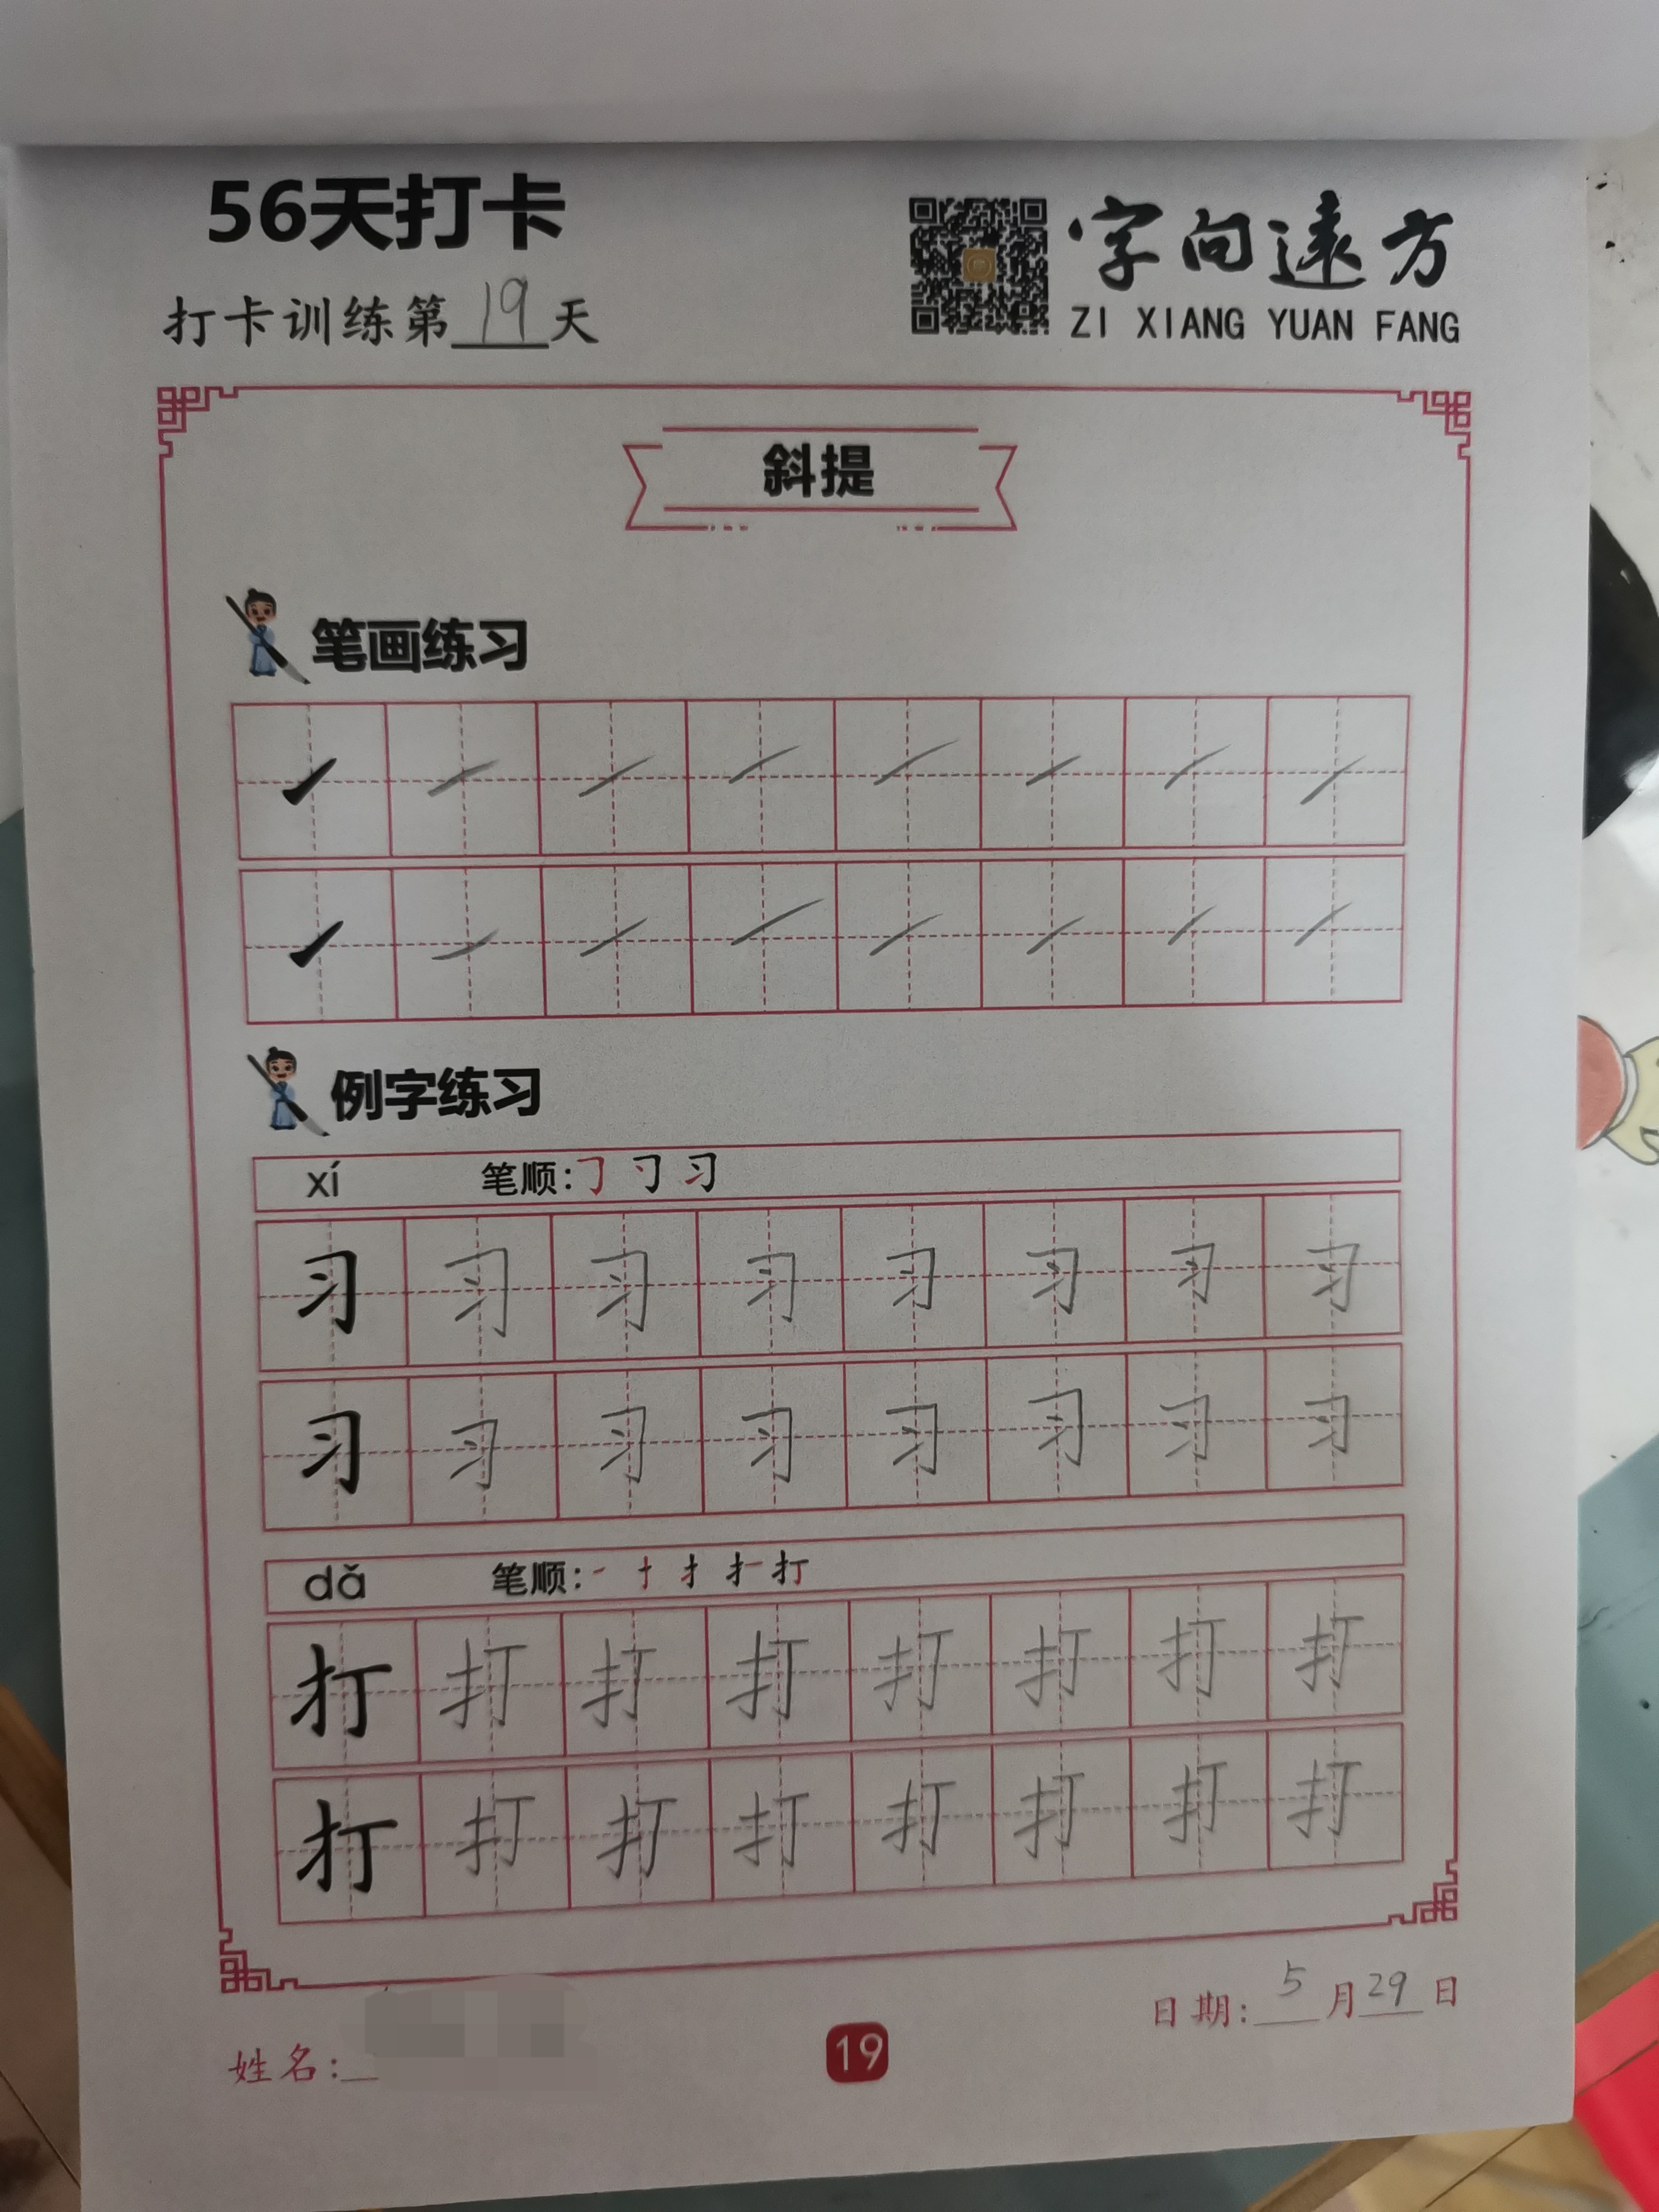 56天打卡
字向遠方
打卡训练第19天
ZI XIANG YUAN FANG
斜提
笔画练习
例字练习
xí 笔顺:
习 习 习 习 习 习 习 习
习 习 习 习 习 习 习 习
dǎ 笔顺:一 十 扌 扌 打
打 打 打 打 打 打 打 打
打 打 打 打 打 打 打 打
日期: 5 月 29 日
姓名:
19